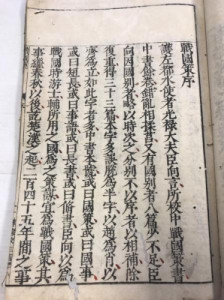 戰國策序
護左都水使者光祿大夫臣向言所校中戰國策書
中書餘卷錯亂相糅莒又有國別者八篇少不足臣
向因國別者略以時次之分別不以序者以相補除
復重得三十三篇本字多誤脫為半字以趙為肖以
齊為立如此字者多中書本號或曰國策或曰國事
或曰短長或曰事語或曰長書或曰脩書臣向以為
戰國時游士輔所用之國為之策謀宜為戰國策其
事繼春秋以後訖楚漢之起二百四十五年間之事